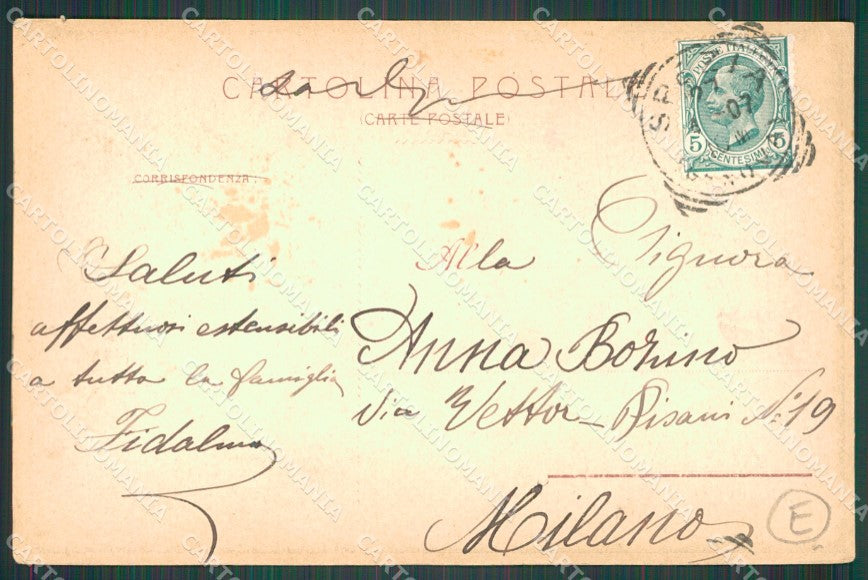 CARTOLINA POSTALE
(CARTE POSTALE)
POSTE ITALIANE
5 5
CENTESIMI
SPEZIA
07
CORRISPONDENZA:
Saluti
affettuosi estensibili
a tutta la famiglia
Fidalma
Alla Signora
Anna Borino
Via Vettor-Pisani N.19
Milano
E
CARTOLINOMANIA